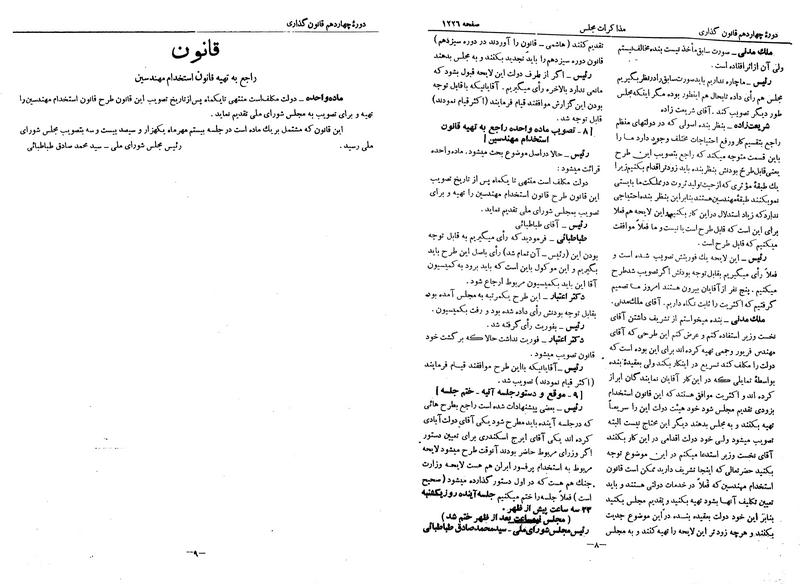 دورهٔ چهاردهم قانون گذاری
مذاکرات مجلس
صفحه ۱۲۲۶
ملك مدنی ـ صورت سابق مأخذ نیست بنده مخالف نیستم
ولی آن از اثر افتاده است .
رئیس ـ ما چاره نداریم باید صورت سابق را در نظر بگیریم
مجلس هم رأی داده تا بحال هم اینطور بوده مگر اینکه مجلس
طور دیگر تصویب کند . آقای شریعت زاده
شریعت‌زاده ـ بنظر بنده اصولی که در دولتهای منظم
راجع بتقسیم کار و رفع احتیاجات مختلف وجود دارد ما را
باین قسمت متوجه میکند که راجع بتصویب این طرح
یعنی قابل طرح بودنش بنظر بنده باید زودتر اقدام بکنیم زیرا
یك طبقهٔ مؤثری که از حیث تولید ثروت در مملکت ما بایستی
نمو بکنند طبقهٔ مهندسین هستند بنابر این بنظر بنده احتیاجی
ندارد که زیاد استدلال در این کار بکنیم این لایحه هم فعلا
برای این است که قابل طرح است یا نیست و ما فعلا موافقت
میکنیم که قابل طرح است .
رئیس ـ این لایحه یك فوریتش تصویب شده است و
فعلا رأی میگیریم بقابل توجه بودنش اگر تصویب شد طرح
میکنیم . پنج نفر از آقایان بیرون هستند امروز ما تصمیم
گرفتیم که اکثریت را ثابت نگاه داریم . آقای ملك مدنی .
ملك مدنی ـ بنده میخواستم از تشریف داشتن آقای
نخست وزیر استفاده کنم و عرض کنم این طرحی که آقای
مهندس فریور و جمعی تهیه کرده اند برای این بوده است که
دولت را مکلف کند تسریع در اینکار بکند ولی بعقیدهٔ بنده
بواسطهٔ تمایلی که در این کار آقایان نمایندگان ابراز
کرده اند و اکثریت موافق هستند که این قانون استخدام
بزودی تقدیم مجلس شود خود هیئت دولت این را سریعاً
تهیه بکنند و به مجلس بدهند دیگر این محتاج نیست البته
تصویب میشود ولی خود دولت اقدامی در این کار بکنند
آقای نخست وزیر استدعا میکنم در این موضوع توجه
بکنید حضرتعالی که اینجا تشریف دارید ممکن است قانون
استخدام مهندسین که فعلا در خدمات دولتی هستند و باید
تعیین تکلیف آنها بشود تهیه بکنید و تقدیم مجلس بکنید
بنابر این خود دولت بعقیده بنده در این موضوع جدیت
بکنند و هرچه زودتر این لایحه را تهیه کنند و به مجلس
تقدیم کنند ( هاشمی ـ قانون را آوردند در دوره سیزدهم )
قانون دوره سیزدهم را باید تجدید بکنند و به مجلس بدهند
رئیس ـ اگر از طرف دولت این لایحه قبول بشود که
مانعی ندارد بالاخره رأی میگیریم . آقایانیکه با قابل توجه
بودن این گزارش موافقند قیام فرمایند (اکثر قیام نمودند)
قابل توجه شد .
[ ۸ ـ تصویب ماده واحده راجع به تهیه قانون
استخدام مهندسین ]
رئیس ـ حالا در اصل موضوع بحث میشود . ماده واحده
قرائت میشود :
دولت مکلف است منتهی تا یکماه پس از تاریخ تصویب
این قانون طرح قانون استخدام مهندسین را تهیه و برای
تصویب بمجلس شورای ملی تقدیم نماید .
رئیس ـ آقای طباطبائی
طباطبائی ـ فرمودید که رأی میگیریم به قابل توجه
بودن این (رئیس ـ آن تمام شد) رأی باصل این طرح باید
بگیریم و این موکول باین است که باید برود به کمیسیون
آقا این باید بکمیسیون مربوط ارجاع شود .
دکتر اعتبار ـ این طرح یکمرتبه به مجلس آمده بود
بقابل توجه بودنش رأی داده شده بود و رفت بکمیسیون .
رئیس ـ بفوریت رأی گرفته شد .
دکتر اعتبار ـ فوریت نداشت حالا که برگشت خود
قانون تصویب میشود .
رئیس ـ آقایانیکه با این طرح موافقند قیام فرمایند
( اکثر قیام نمودند ) تصویب شد .
[ ۹ ـ موقع و دستور جلسه آتیه ـ ختم جلسه ]
رئیس ـ بعضی پیشنهادات شده است راجع بطرح هائی
که در جلسه آینده باید مطرح شود یکی آقای دولت‌آبادی
کرده اند یکی آقای ایرج اسکندری برای تعیین دستور
اگر وزرای مربوط حاضر بودند آنوقت طرح میشود لایحه
مربوط به استخدام پرفسور ابرلن هم هست لایحه وزارت
جنك هم هست که در اول دستور گذارده میشود ( صحیح
است ) فعلا جلسه را ختم میکنیم جلسه آینده روز یکشنبه
۲۳ سه ساعت پیش از ظهر .
( مجلس نیمساعت بعد از ظهر ختم شد )
رئیس مجلس شورای ملی ـ سید محمد صادق طباطبائی
ـ۸ـ
دورهٔ چهاردهم قانون گذاری
قانون
راجع به تهیه قانون استخدام مهندسین
ماده واحده ـ دولت مکلف است منتهی تا یکماه پس از تاریخ تصویب این قانون طرح قانون استخدام مهندسین را
تهیه و برای تصویب به مجلس شورای ملی تقدیم نماید .
این قانون که مشتمل بر یك ماده است در جلسه بیستم مهرماه یکهزار و سیصد بیست و سه بتصویب مجلس شورای
ملی رسید .
رئیس مجلس شورای ملی ـ سید محمد صادق طباطبائی
ـ۹ـ